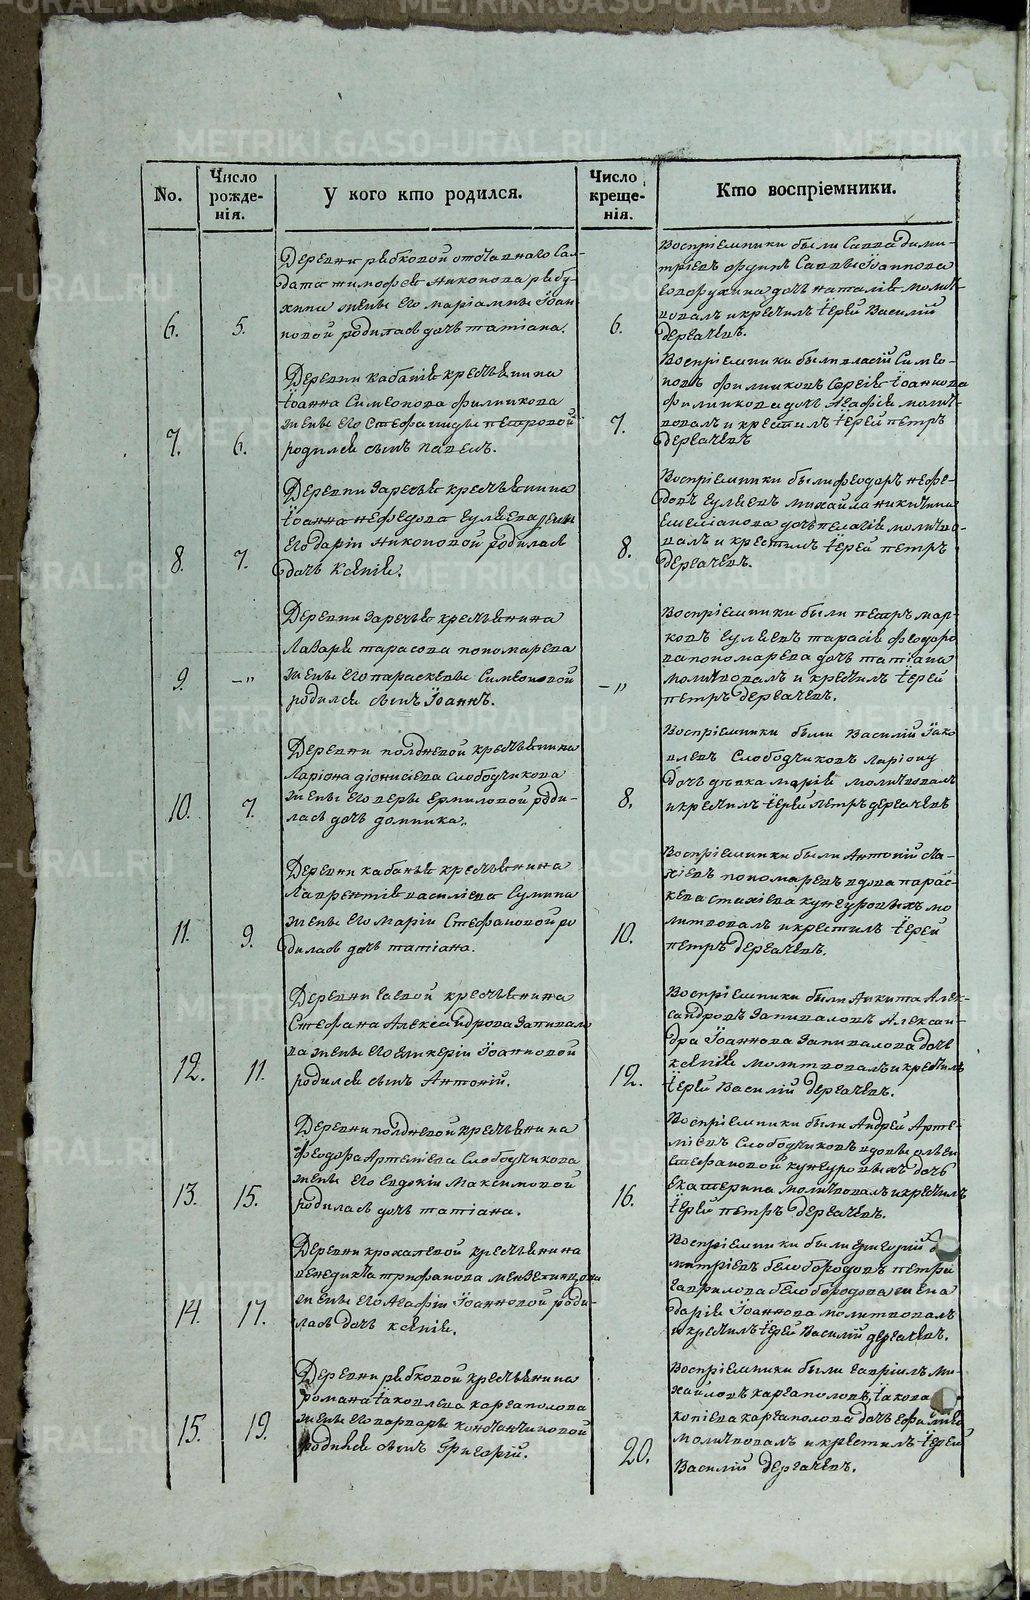 No.
Число рожде-
нія.
У кого кто родился.
Число креще-
нія.
Кто воспріемники.
6.
5.
Деревни рябковой отставнаго Сал-
дата тимофея никонова рябу-
хина жены его маріамны Іоан
новой родилась дочь татіана.
6.
Воспріемники были Савва дими-
тріевъ Саввы Іоаннова
дочь наталія молит-
вовалъ и крестилъ Іерей Василій
дергачевъ.
7.
6.
Деревни кабаніи крестьянина
Іоанна Симеонова филипкова
жены его Стефаниды петровой
родился сынъ павелъ.
7.
Воспріемники были власій Симео-
новъ филипковъ Сергія Іоаннова
филипкова дочь Агафія молит-
вовалъ и крестилъ Іерей петръ
дергачевъ
8.
7.
Деревни Заречья крестьянина
Іоанна нефедова Гуляева жены
Его даріи никоновой родилась
дочь Ксенія.
8.
Воспріемники были феодоръ нефе-
довъ Гуляевъ михайла никитина
дочь пелагія молитво-
валъ и крестилъ Іерей петръ
дергачевъ.
9.
–"
Деревни Заречья крестьянина
Лазаря тарасова пономарева
жены его параскевы Симеоновой
родился сынъ Іоаннъ.
–"
Воспріемники были петръ мар-
ковъ Гуляевъ тарасія феодоро
ва пономарева дочь татіана
молитвовалъ и крестилъ Іерей
петръ дергачевъ.
10.
7.
Деревни полдневой крестьянина
Ларіона діонисіева Слободчикова
жены его веры Ермиловой роди-
лась дочь домника.
8.
Воспріемники были Василій Іако
влевъ Слободчиковъ Ларіону
дочь девка марія молитвовалъ
и крестилъ Іерей петръ дергачевъ
11.
9.
Деревни кабанья крестьянина
Лаврентія василіева Сулина
жены его маріи Стефановой ро
дилась дочь татіана.
10.
Воспріемники были Антоній Ста-
хіевъ пономаревъ вдова парас-
кева стахіева кунгуровыхъ мо
литвовалъ и крестилъ Іерей
петръ дергачевъ.
12.
11.
Деревни Гаевой крестьянина
Стефана Александрова Запивало
ва жены его гликеріи Іоанновой
родился сынъ Антоній.
12.
Воспріемники были Никита Алек-
сандровъ Запиваловъ Алексан-
дра Іоаннова Запивалова дочь
ксенія молитвовалъ и крестилъ
Іерей Василій дергачевъ.
13.
15.
Деревни полдневой крестьянина
феодора Артеміева Слободчикова
жены его Евдокіи Максимовой
родилась дочь татіана.
16.
Воспріемники были Андрей Арте-
міевъ Слободчиковъ вдовы
стефановой кунгуровыхъ дочь
екатерина молитвовалъ и крестилъ
Іерей петръ дергачевъ.
14.
17.
Деревни крохалевой крестьянина
венедикта трифанова
жены его Агафіи Іоанновой роди-
лась дочь ксенія.
Воспріемники были григорій
митріевъ белобородовъ петра
гаврилова белобородова жена
дарія Іоаннова молитвовалъ
и крестилъ Іерей Василій дергачевъ.
15.
19.
Деревни рябковой крестьянина
романа Іаковлева каргаполова
жены его варвары константиновой
родился сынъ Григорій.
20.
Воспріемники были гавріилъ ми-
хайловъ каргаполовъ, Іакова
копіева каргаполова дочь
молитвовалъ и крестилъ Іерей
Василій дергачевъ.
METRIKI.GASO-URAL.RU